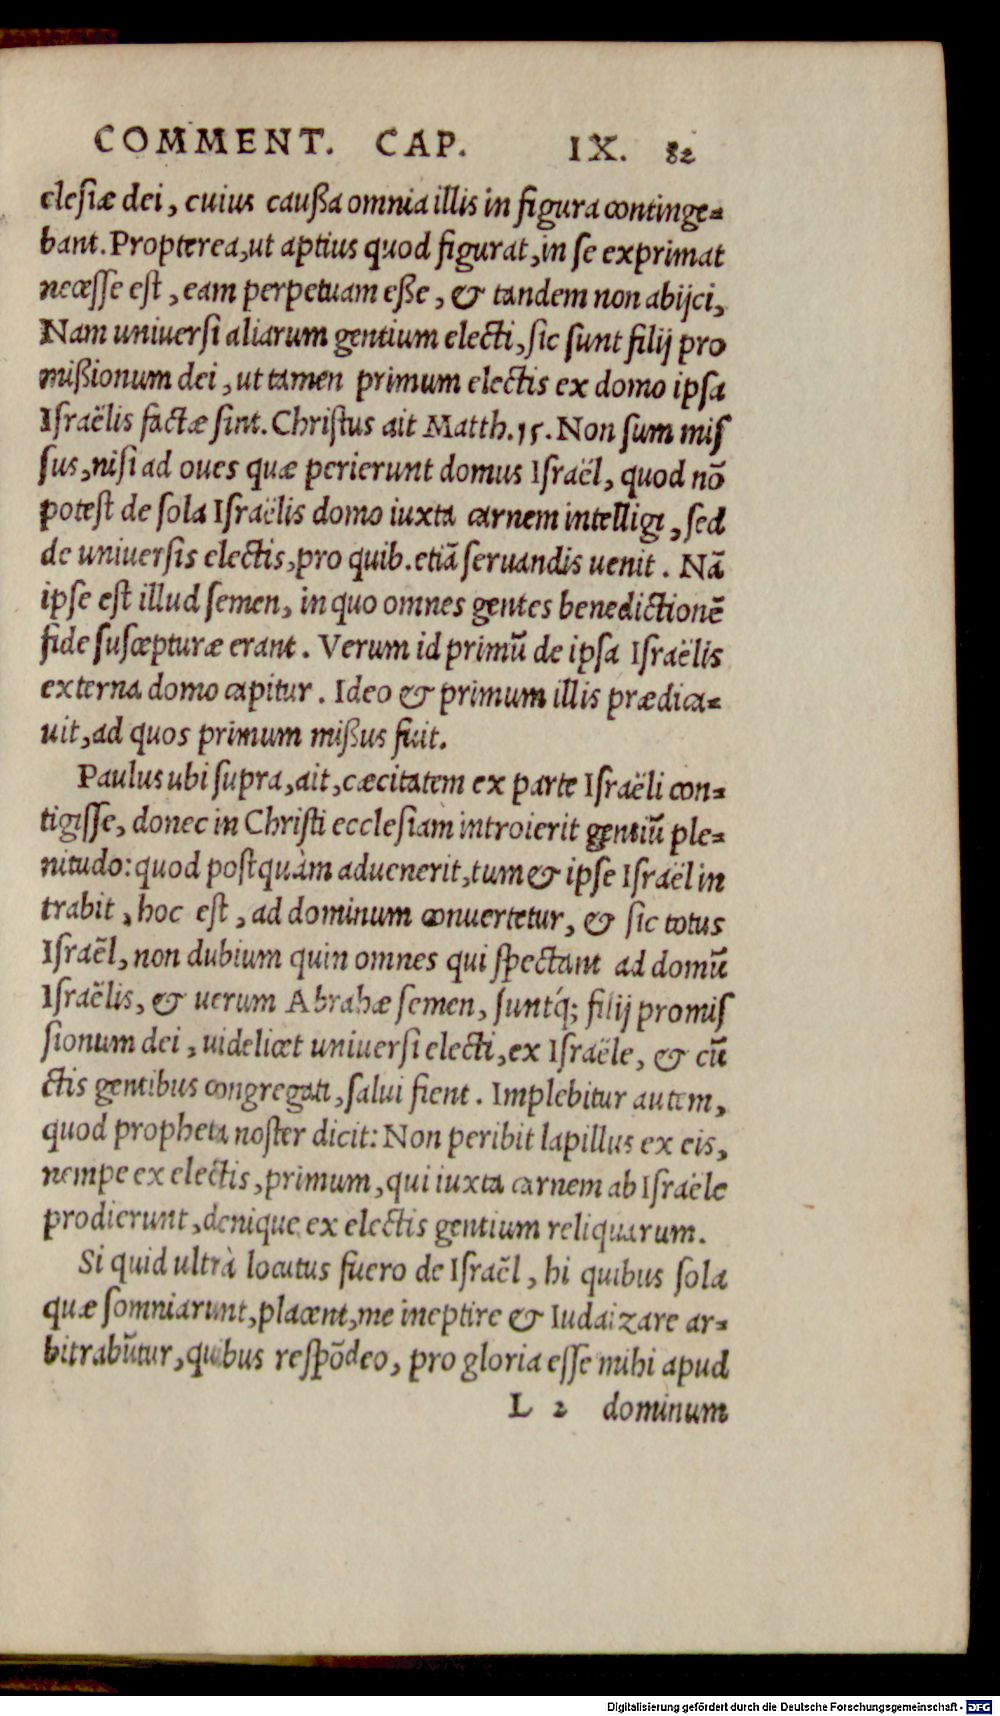 COMMENT. CAP. IX. 82
clesiæ dei, cuius caußa omnia illis in figura continge-
bant. Propterea, ut aptius quod figurat, in se exprimat
necesse est, eam perpetuam eße, & tandem non abijci,
Nam uniuersi aliarum gentium electi, sic sunt filij pro
mißionum dei, ut tamen primum electis ex domo ipsa
Israëlis factæ sint. Christus ait Matth. 15. Non sum mis
sus, nisi ad oues quæ perierunt domus Israël, quod nō
potest de sola Israëlis domo iuxta carnem intelligi, sed
de uniuersis electis, pro quib. etiā seruandis uenit. Nā
ipse est illud semen, in quo omnes gentes benedictionē
fide suscepturæ erant. Verum id primū de ipsa Israëlis
externa domo capitur. Ideo & primum illis prædica-
uit, ad quos primum mißus fuit.
Paulus ubi supra, ait, cæcitatem ex parte Israëli con-
tigisse, donec in Christi ecclesiam introierit gentiū ple-
nitudo: quod postquàm aduenerit, tum & ipse Israël in
trabit, hoc est, ad dominum conuertetur, & sic totus
Israël, non dubium quin omnes qui spectant ad domū
Israëlis, & uerum Abrahæ semen, suntq́; filij promis
sionum dei, uidelicet uniuersi electi, ex Israële, & cū
ctis gentibus congregati, salui fient. Implebitur autem,
quod propheta noster dicit: Non peribit lapillus ex eis,
nempe ex electis, primum, qui iuxta carnem ab Israële
prodierunt, denique ex electis gentium reliquarum.
Si quid ultrà locutus fuero de Israël, hi quibus sola
quæ somniarunt, placent, me ineptire & Iudaizare ar-
bitrabūtur, quibus respōdeo, pro gloria esse mihi apud
L 2 dominum
Digitalisierung gefördert durch die Deutsche Forschungsgemeinschaft - DFG